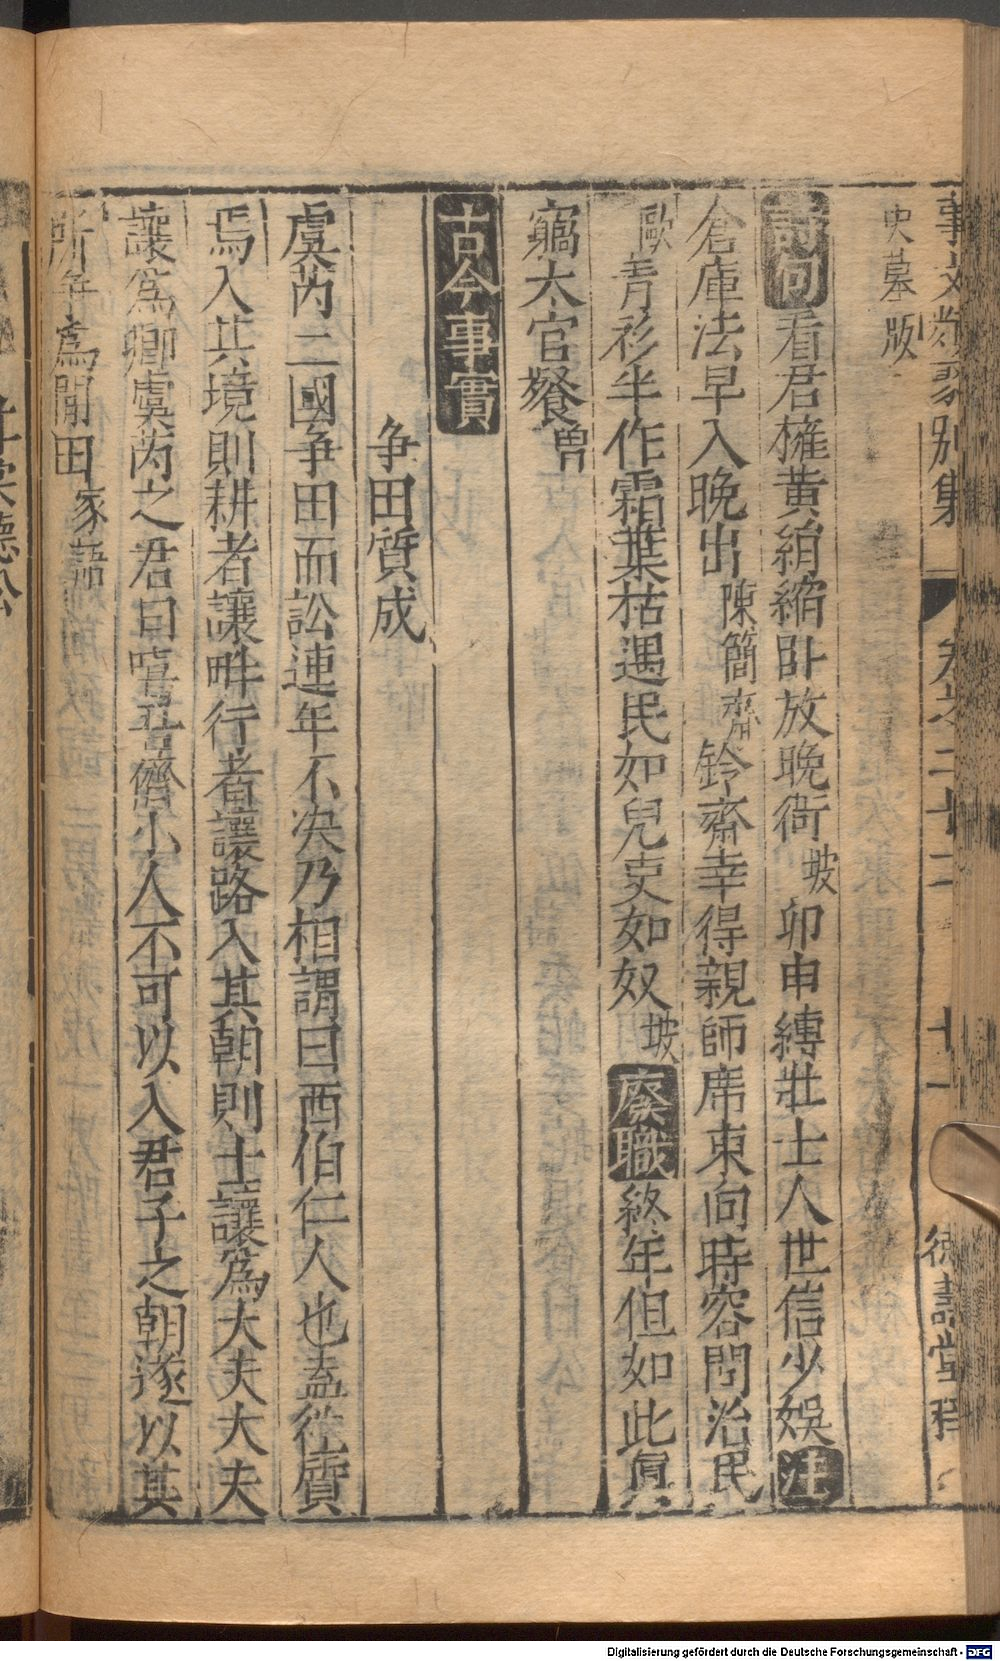 事文類聚別集 卷之二十二 十一 德壽堂梓
史墓版
詩句看君擁黃紬縮卧放晚衙坡卯申縳壯士人世信少娛注
倉庫法早入晚出陳簡齋鈴齋幸得親師席東向時容問治民
歐青衫半作霜葉枯遇民如兒吏如奴坡廢職終年但如此真
竊太官餐曾
古今事實
争田質成
虞芮二國争田而訟連年不决乃相謂曰西伯仁人也盍徃質
焉入其境則耕者讓畔行者讓路入其朝則士讓為大夫大夫
讓為卿虞芮之君曰嘻吾儕小人不可以入君子之朝遂以其
所争為閒田家語
Digitalisierung gefördert durch die Deutsche Forschungsgemeinschaft - DFG